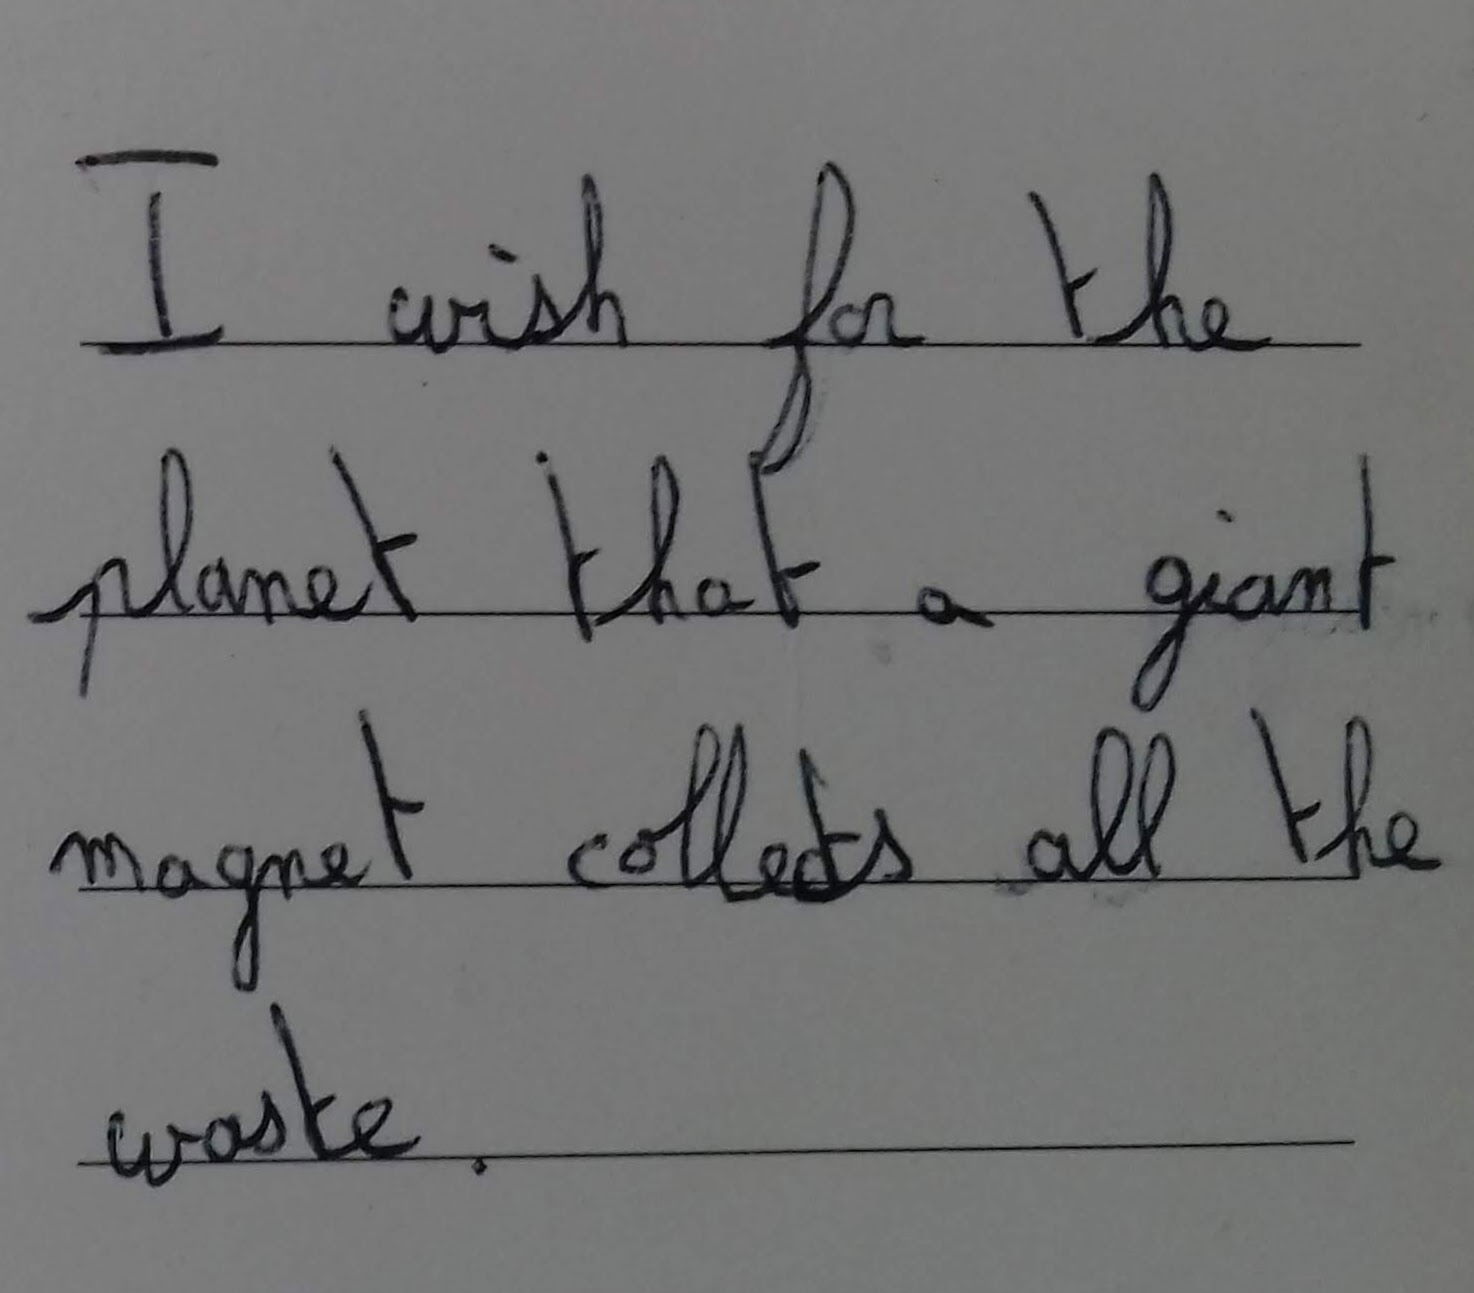 I wish for the
planet that a giant
magnet collects all the
waste.